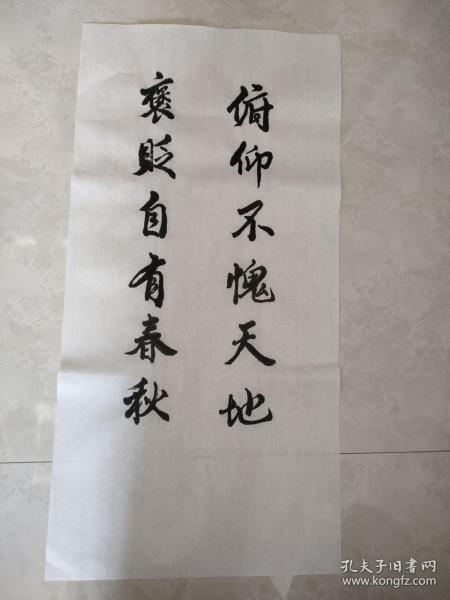 俯仰不愧天地
褒贬自有春秋
孔夫子旧书网
www.kongfz.com